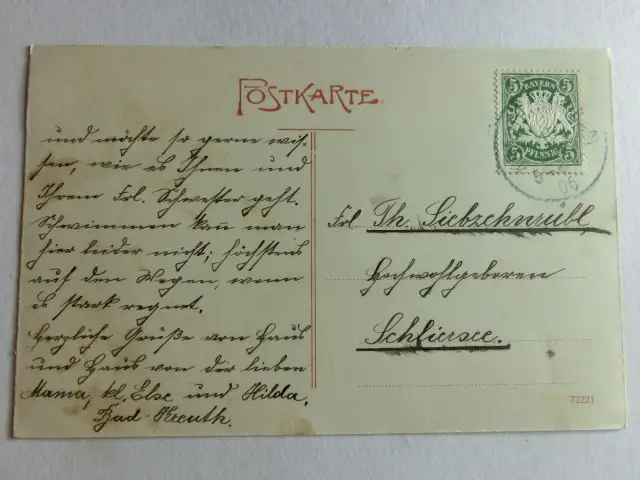 POSTKARTE
und möchte so gerne wis-
sen, wie es Ihnen und
Ihrem Frl. Schwester geht.
Schwimmen kann man
hier leider nicht; höchstens
auf den Wegen, wenn
es stark regnet.
Herzliche Grüße von Haus
und Haus von der lieben
Mama, kl. Else und Hilda,
Bad-Kreuth.
5 BAYERN 5
5 PFENNIG 5
5
06
Frl. Th. Siebzehnrübl,
Hochwohlgeboren
Schliersee.
72221